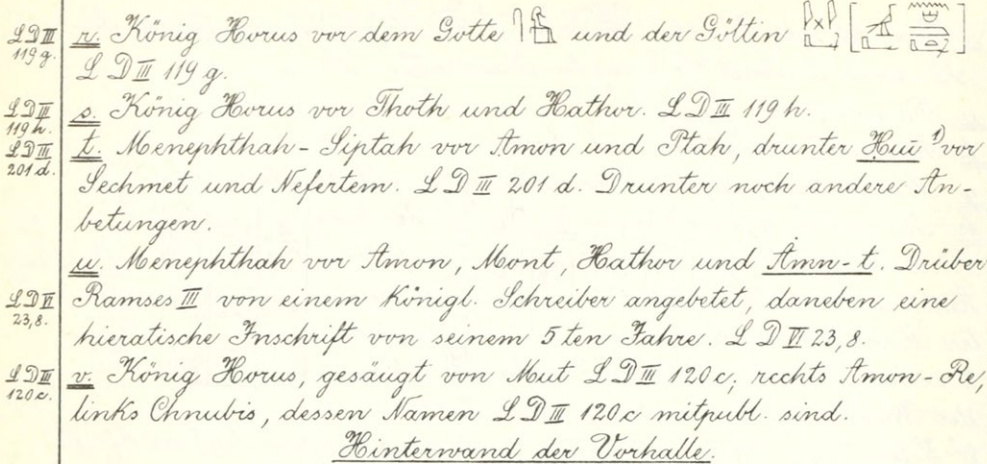 LDIII 119 g. r. König Horus vor dem Gotte und der Göttin
L D III 119 g.
LDIII 119 h. s. König Horus vor Thoth und Hathor. L D III 119 h.
LDIII 201 d. t. Menephthah-Siptah vor Amon und Ptah, drunter Ḥuï ¹⁾ vor
Sechmet und Nefertem. L D III 201 d. Drunter noch andere An-
betungen.
u. Menephthah vor Amon, Mont, Hathor und Ȧmn-t. Drüber
LDVI 23,8. Ramses III von einem Königl. Schreiber angebetet, daneben eine
hieratische Inschrift von seinem 5ten Jahre. L D VI 23, 8.
LDIII 120 c. v. König Horus, gesäugt von Mut L D III 120 c; rechts Amon-Re,
links Chnubis, dessen Namen L D III 120 c mitpubl. sind.
Hinterwand der Vorhalle.